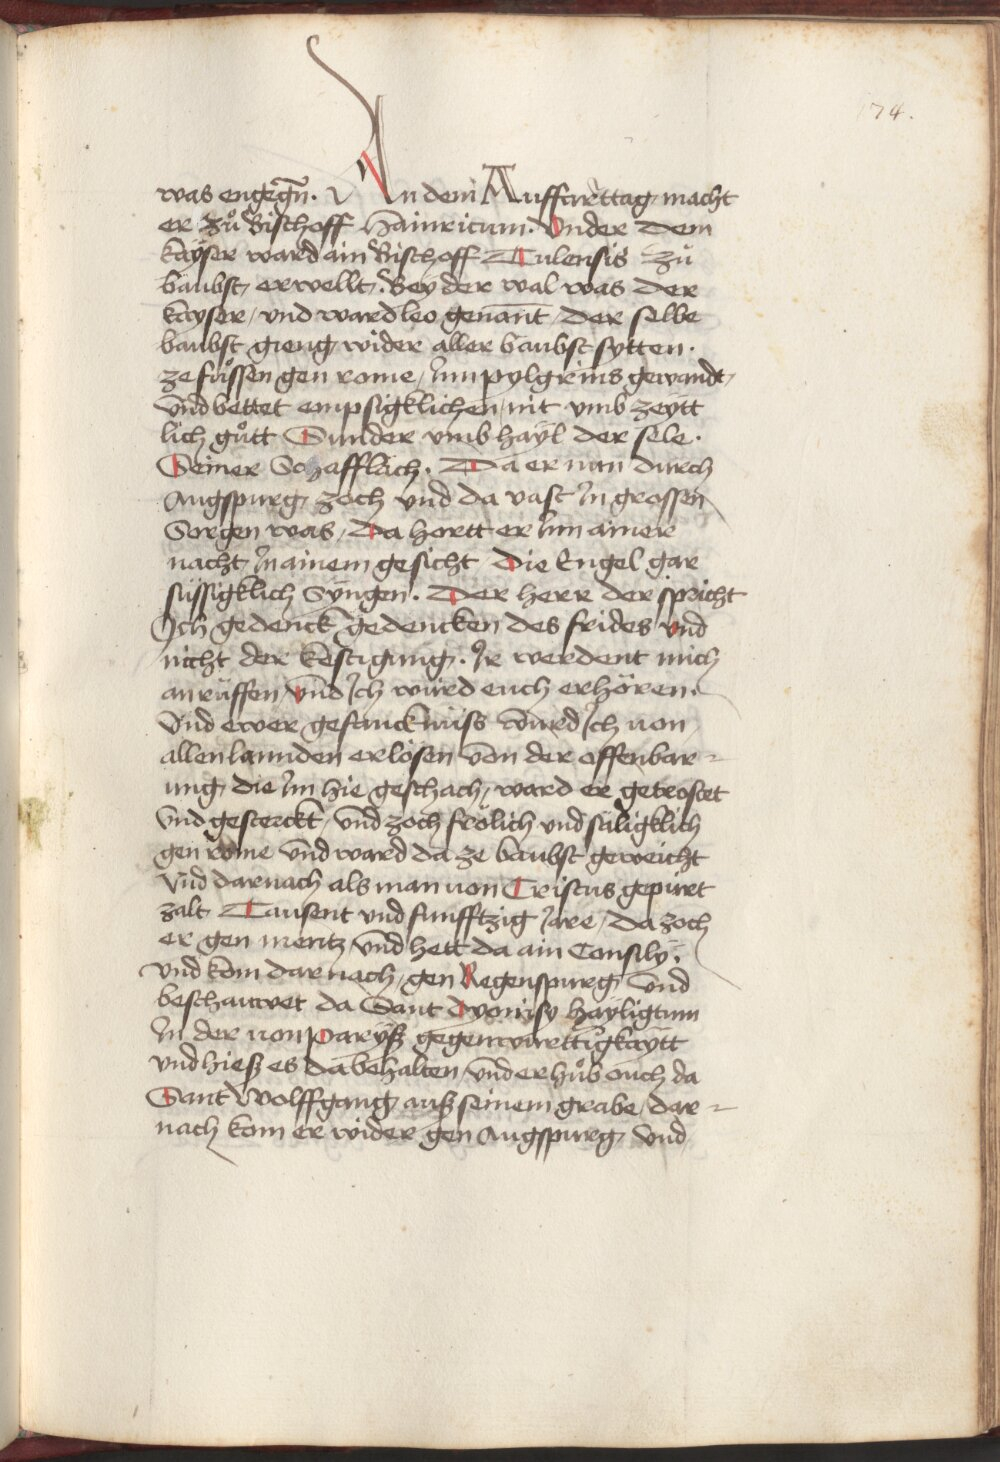 174.
was engegn̄. An dem Auffarttag macht
er zů Bischoff Hainricum. Vnder Dem
kayser ward ain Bischoff Tulensis zů
baubst erwellt. Bey der wal was der
kayser / vnd ward leo genant / Der selbe
baubst gieng wider aller baubst sytten.
ze fůssen gen rome / Inn pylgrims gewandt /
vnd bettet empsigklichen / nit vmb zeytt
lich gůtt Sunder vmb hayl der sele.
Seiner Schafflach. Da er nun durch
Augspurg zoch vnd da vast In grossen
Sorgen was / Da hortt er Inn ainer
nacht In ainem gesicht Die Engel gar
süssigklich Syngen. Der herr der spricht
Ich gedenck gedencken des frides vnd
nicht der kestigung. Ir werdent mich
anrüffen / vnd Ich würd euch erhören.
Vnd ewer gefanckniss würd Ich von
allen lannden erlösen von der offenbar=
ung die Im hie geschach / ward er getrostet
vnd gesterckt / vnd zoch frölich vnd säligklich
gen rome vnd ward da ze baubst geweicht
Vnd darnach als man von Cristus gepurt
zalt Tausent vnd funfftzig Jare / Da zoch
er gen mentz vnd hett da ain Consily.
vnd kom darnach / gen Regenspurg vnd
beschauwet da Sant dyonisy hayligtum
In der von paryß gegenwurttigkaytt
vnd hieß es da behalten / vnd er hůb ouch da
Sant Wolffgang auß seinem grabe / dar=
nach kom er wider gen Augspurg vnd